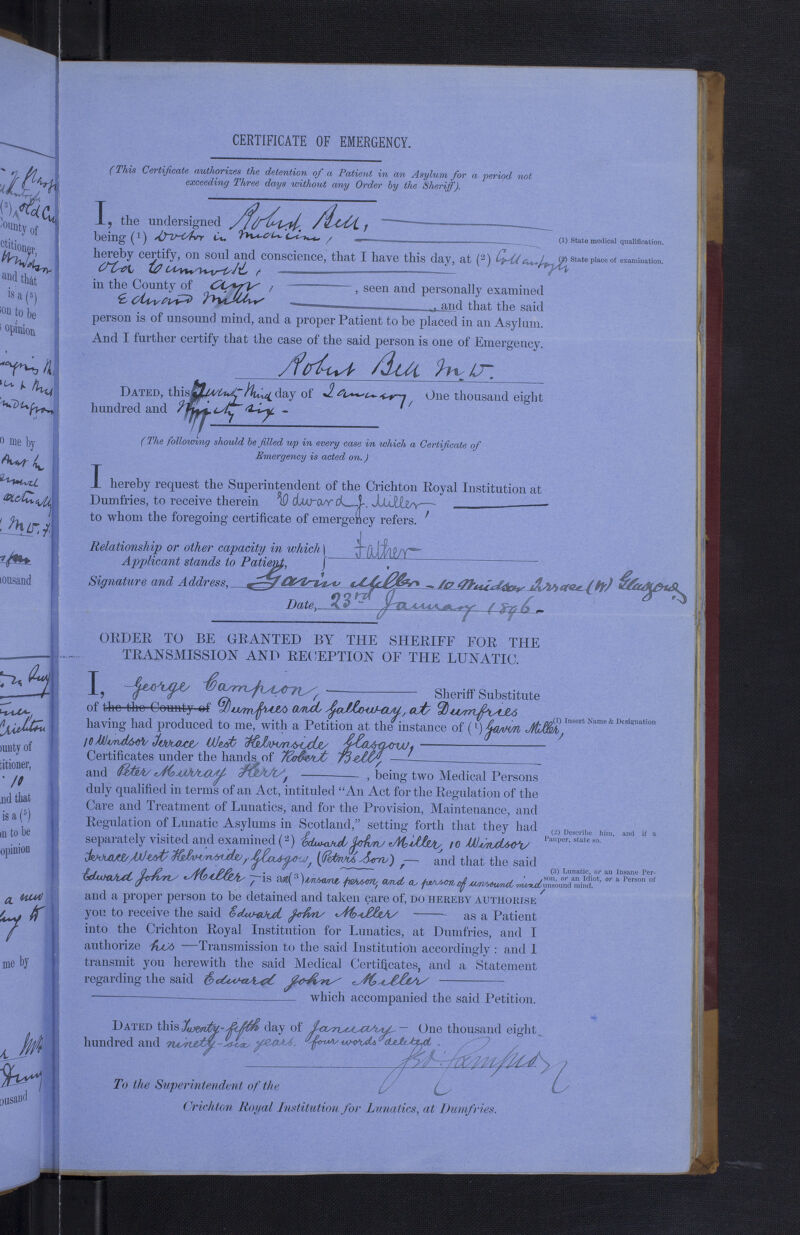 CERTIFICATE OF EMERGENCY.
(This Certificate authorizes the detention of a Patient in an Asylum for a period not
exceeding Three days without any Order by the Sheriff).
I, the undersigned Robert Bell,
being (1) Doctor in Medicine,
(1) State medical qualification.
hereby certify, on soul and conscience, that I have this day, at (2)
(2) State place of examination.
Old Cumnock,
in the County of Ayr, , seen and personally examined
Edward Miller , and that the said
person is of unsound mind, and a proper Patient to be placed in an Asylum.
And I further certify that the case of the said person is one of Emergency.
Robert Bell M.D.
DATED, this Twenty third day of January, One thousand eight
hundred and Ninety six -
(The following should be filled up in every case in which a Certificate of
Emergency is acted on.)
I hereby request the Superintendent of the Crichton Royal Institution at
Dumfries, to receive therein Edward J. Miller
to whom the foregoing certificate of emergency refers.
Relationship or other capacity in which
Applicant stands to Patient, } Father
Signature and Address, Gavin Miller - 10 Windsor Terrace (W) Glasgow
Date, 23rd January 1896 -
ORDER TO BE GRANTED BY THE SHERIFF FOR THE
TRANSMISSION AND RECEPTION OF THE LUNATIC.
I, George Campion, Sheriff Substitute
of the the County of Dumfries and Galloway, at Dumfries
having had produced to me, with a Petition at the instance of (1) Gavin Miller,
(1) Insert Name & Designation
10 Windsor Terrace West Kelvinside Glasgow,
Certificates under the hands of Robert Bell,
and Peter Murray Kerr, , being two Medical Persons
duly qualified in terms of an Act, intituled "An Act for the Regulation of the
Care and Treatment of Lunatics, and for the Provision, Maintenance, and
Regulation of Lunatic Asylums in Scotland," setting forth that they had
separately visited and examined (2) Edward John Miller, 10 Windsor
(2) Describe him, and if a
Pauper, state so.
Terrace West Kelvinside, Glasgow, (Petnr's Son), and that the said
Edward John Miller is an (3) insane person, and a person of unsound mind
(3) Lunatic, or an Insane Per-
son, or an Idiot, or a Person of
unsound mind.
and a proper person to be detained and taken care of, DO HEREBY AUTHORISE
you to receive the said Edward John Miller as a Patient
into the Crichton Royal Institution for Lunatics, at Dumfries, and I
authorize his — Transmission to the said Institution accordingly : and I
transmit you herewith the said Medical Certificates, and a Statement
regarding the said Edward John Miller
which accompanied the said Petition.
DATED this Twenty-fifth day of January - One thousand eight
hundred and ninety-six years. four words deleted.
Geo. Campion
To the Superintendent of the
Crichton Royal Institution for Lunatics, at Dumfries.